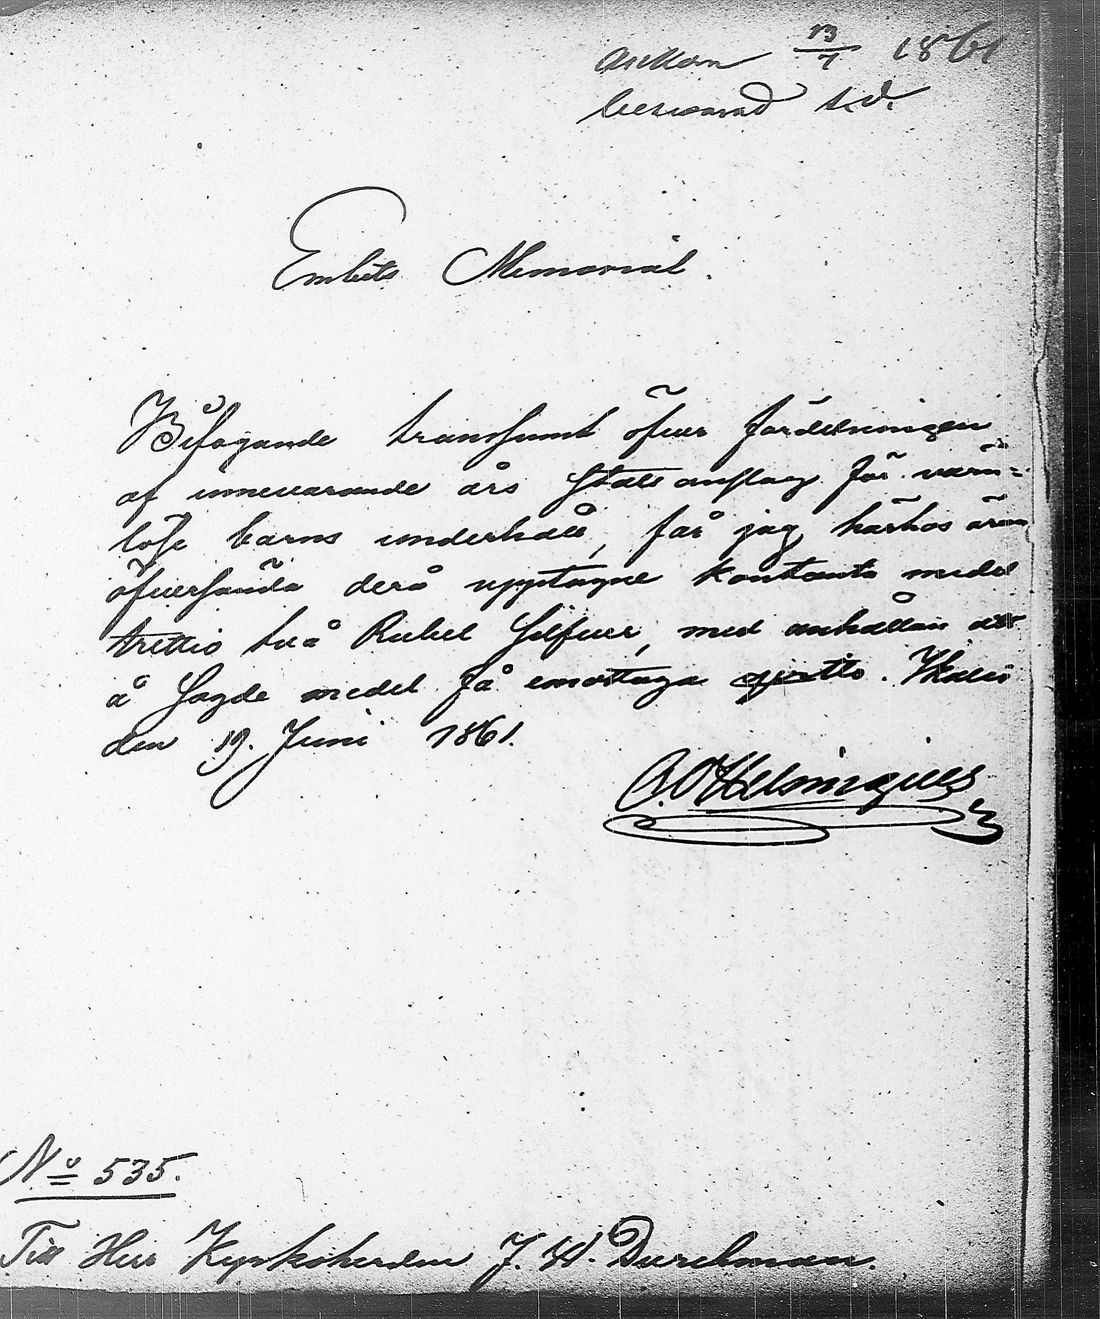 ankom 13/7 1861
besvarad s.d.
Embets Memorial.
Bifogande transsumt öfver fördelningen
af innevarande års Statsanslag för värn=
lösa barns underhåll, får jag härhos äfven
öfversända derå upptagne kontanta medel
trettio två Rubel Silfver, med anhållan att
å sagde medel få emottaga qvitto.
den 19. Juni 1861.
Helsingius
No 535.
Till Herr Kyrkoherden J. W. Durchman.